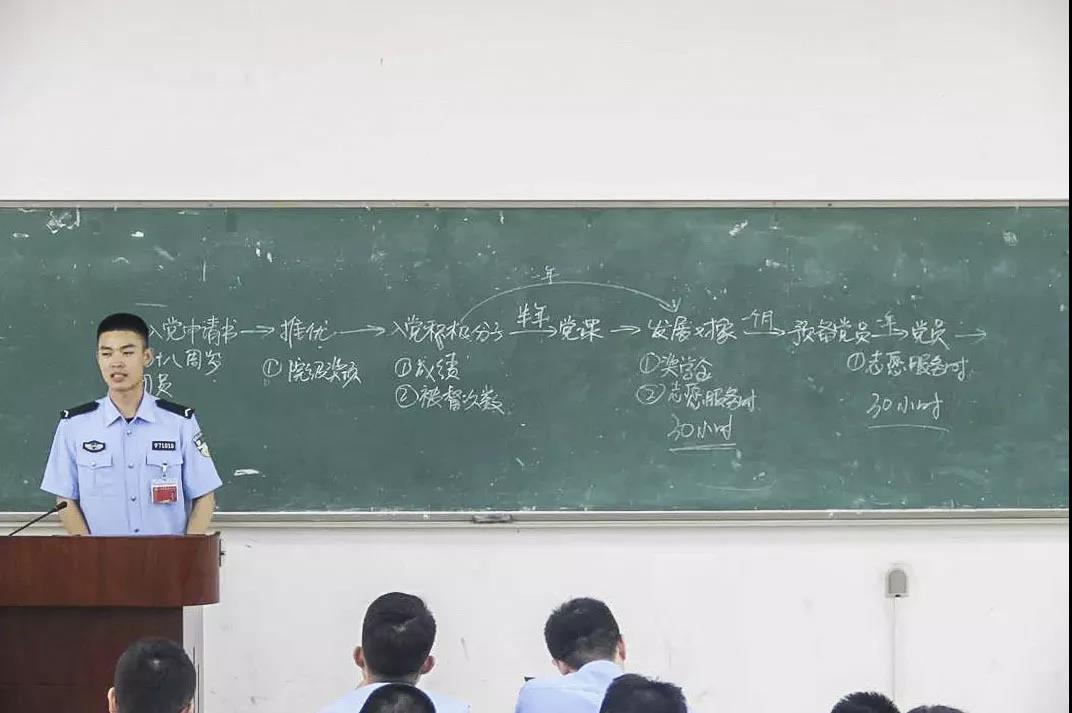 一年
入党申请书 → 推优 → 入党积极分子 半年→ 党课 → 发展对象 一个月→ 预备党员 一年→ 党员 →
十八周岁
①院级奖项
①成绩
②被督次数
①奖学金
②志愿服务时
30小时
①志愿服务时
30小时
员
971019